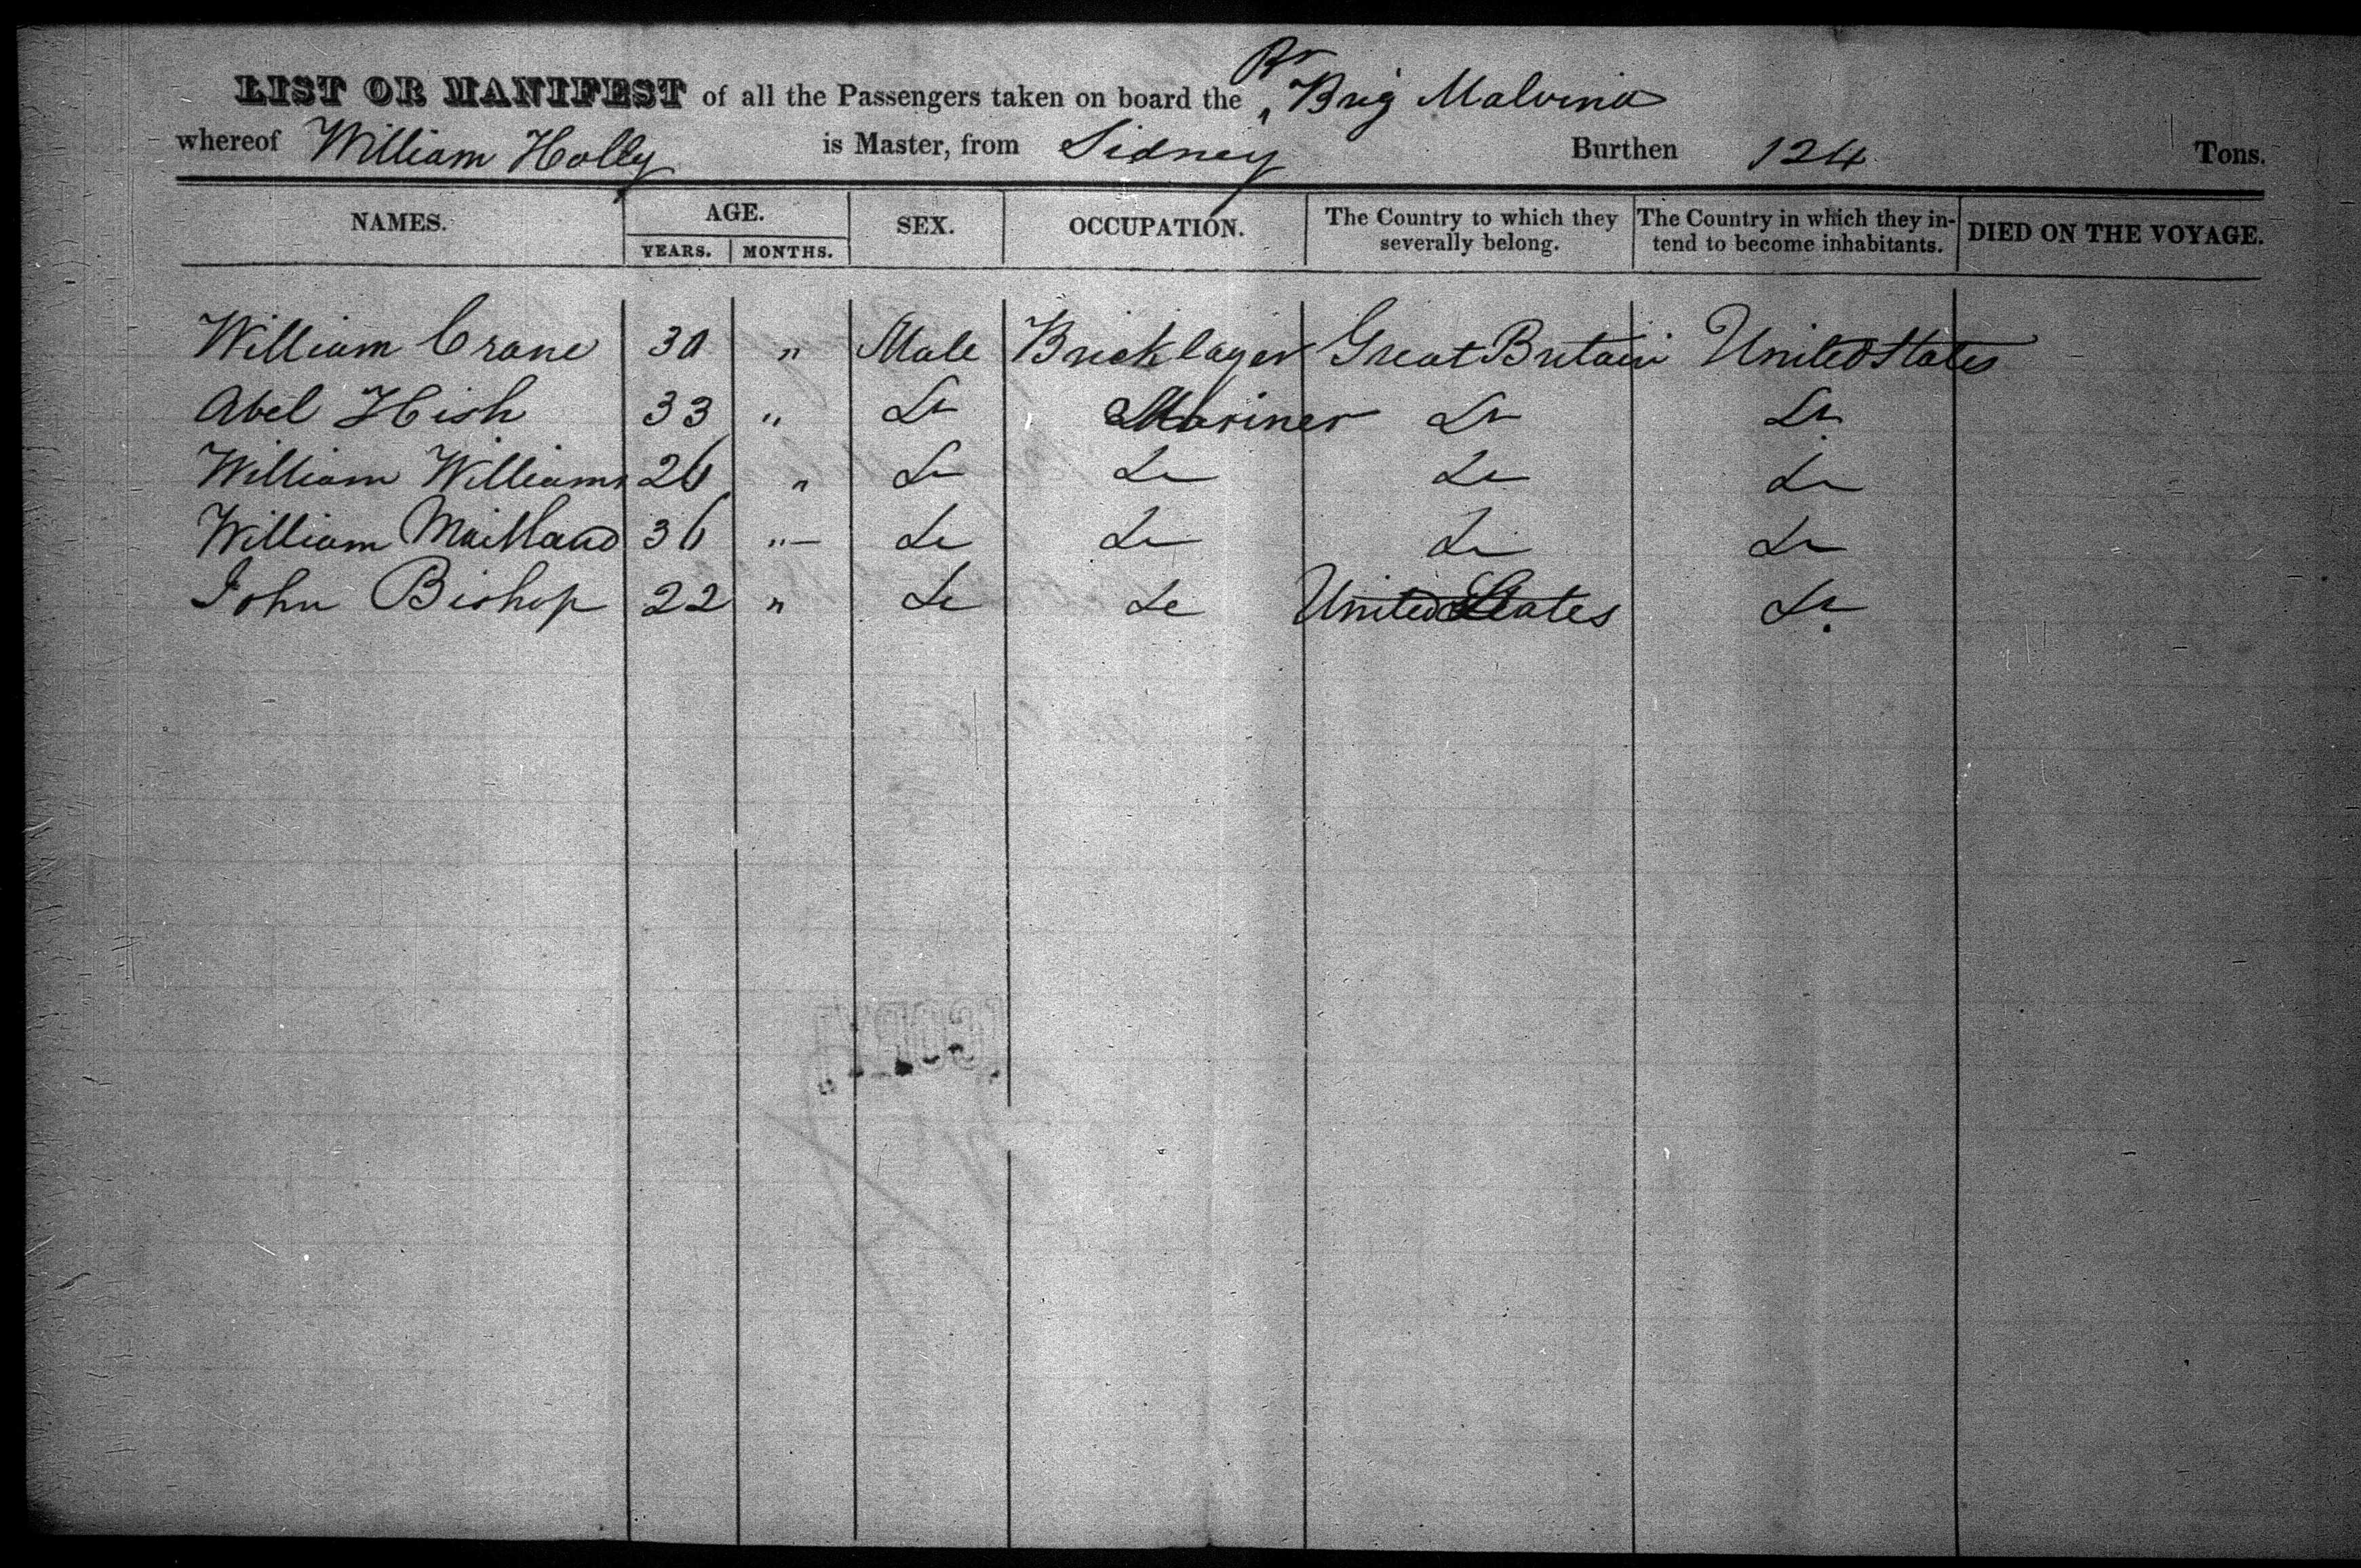 LIST OR MANIFEST of all the Passengers taken on board the Br Brig Malvina
whereof William Holly is Master, from Sidney Burthen 124 Tons.
NAMES. AGE. SEX. OCCUPATION. The Country to which they severally belong. The Country in which they intend to become inhabitants. DIED ON THE VOYAGE.
YEARS. MONTHS.
William Crane 30 " Male Bricklayer Great Britain United States
Abel Hish 33 " Do Mariner Do Do
William Williams 26 " Do Do Do Do
William Maitland 36 " Do Do Do Do
John Bishop 22 " Do Do United States Do